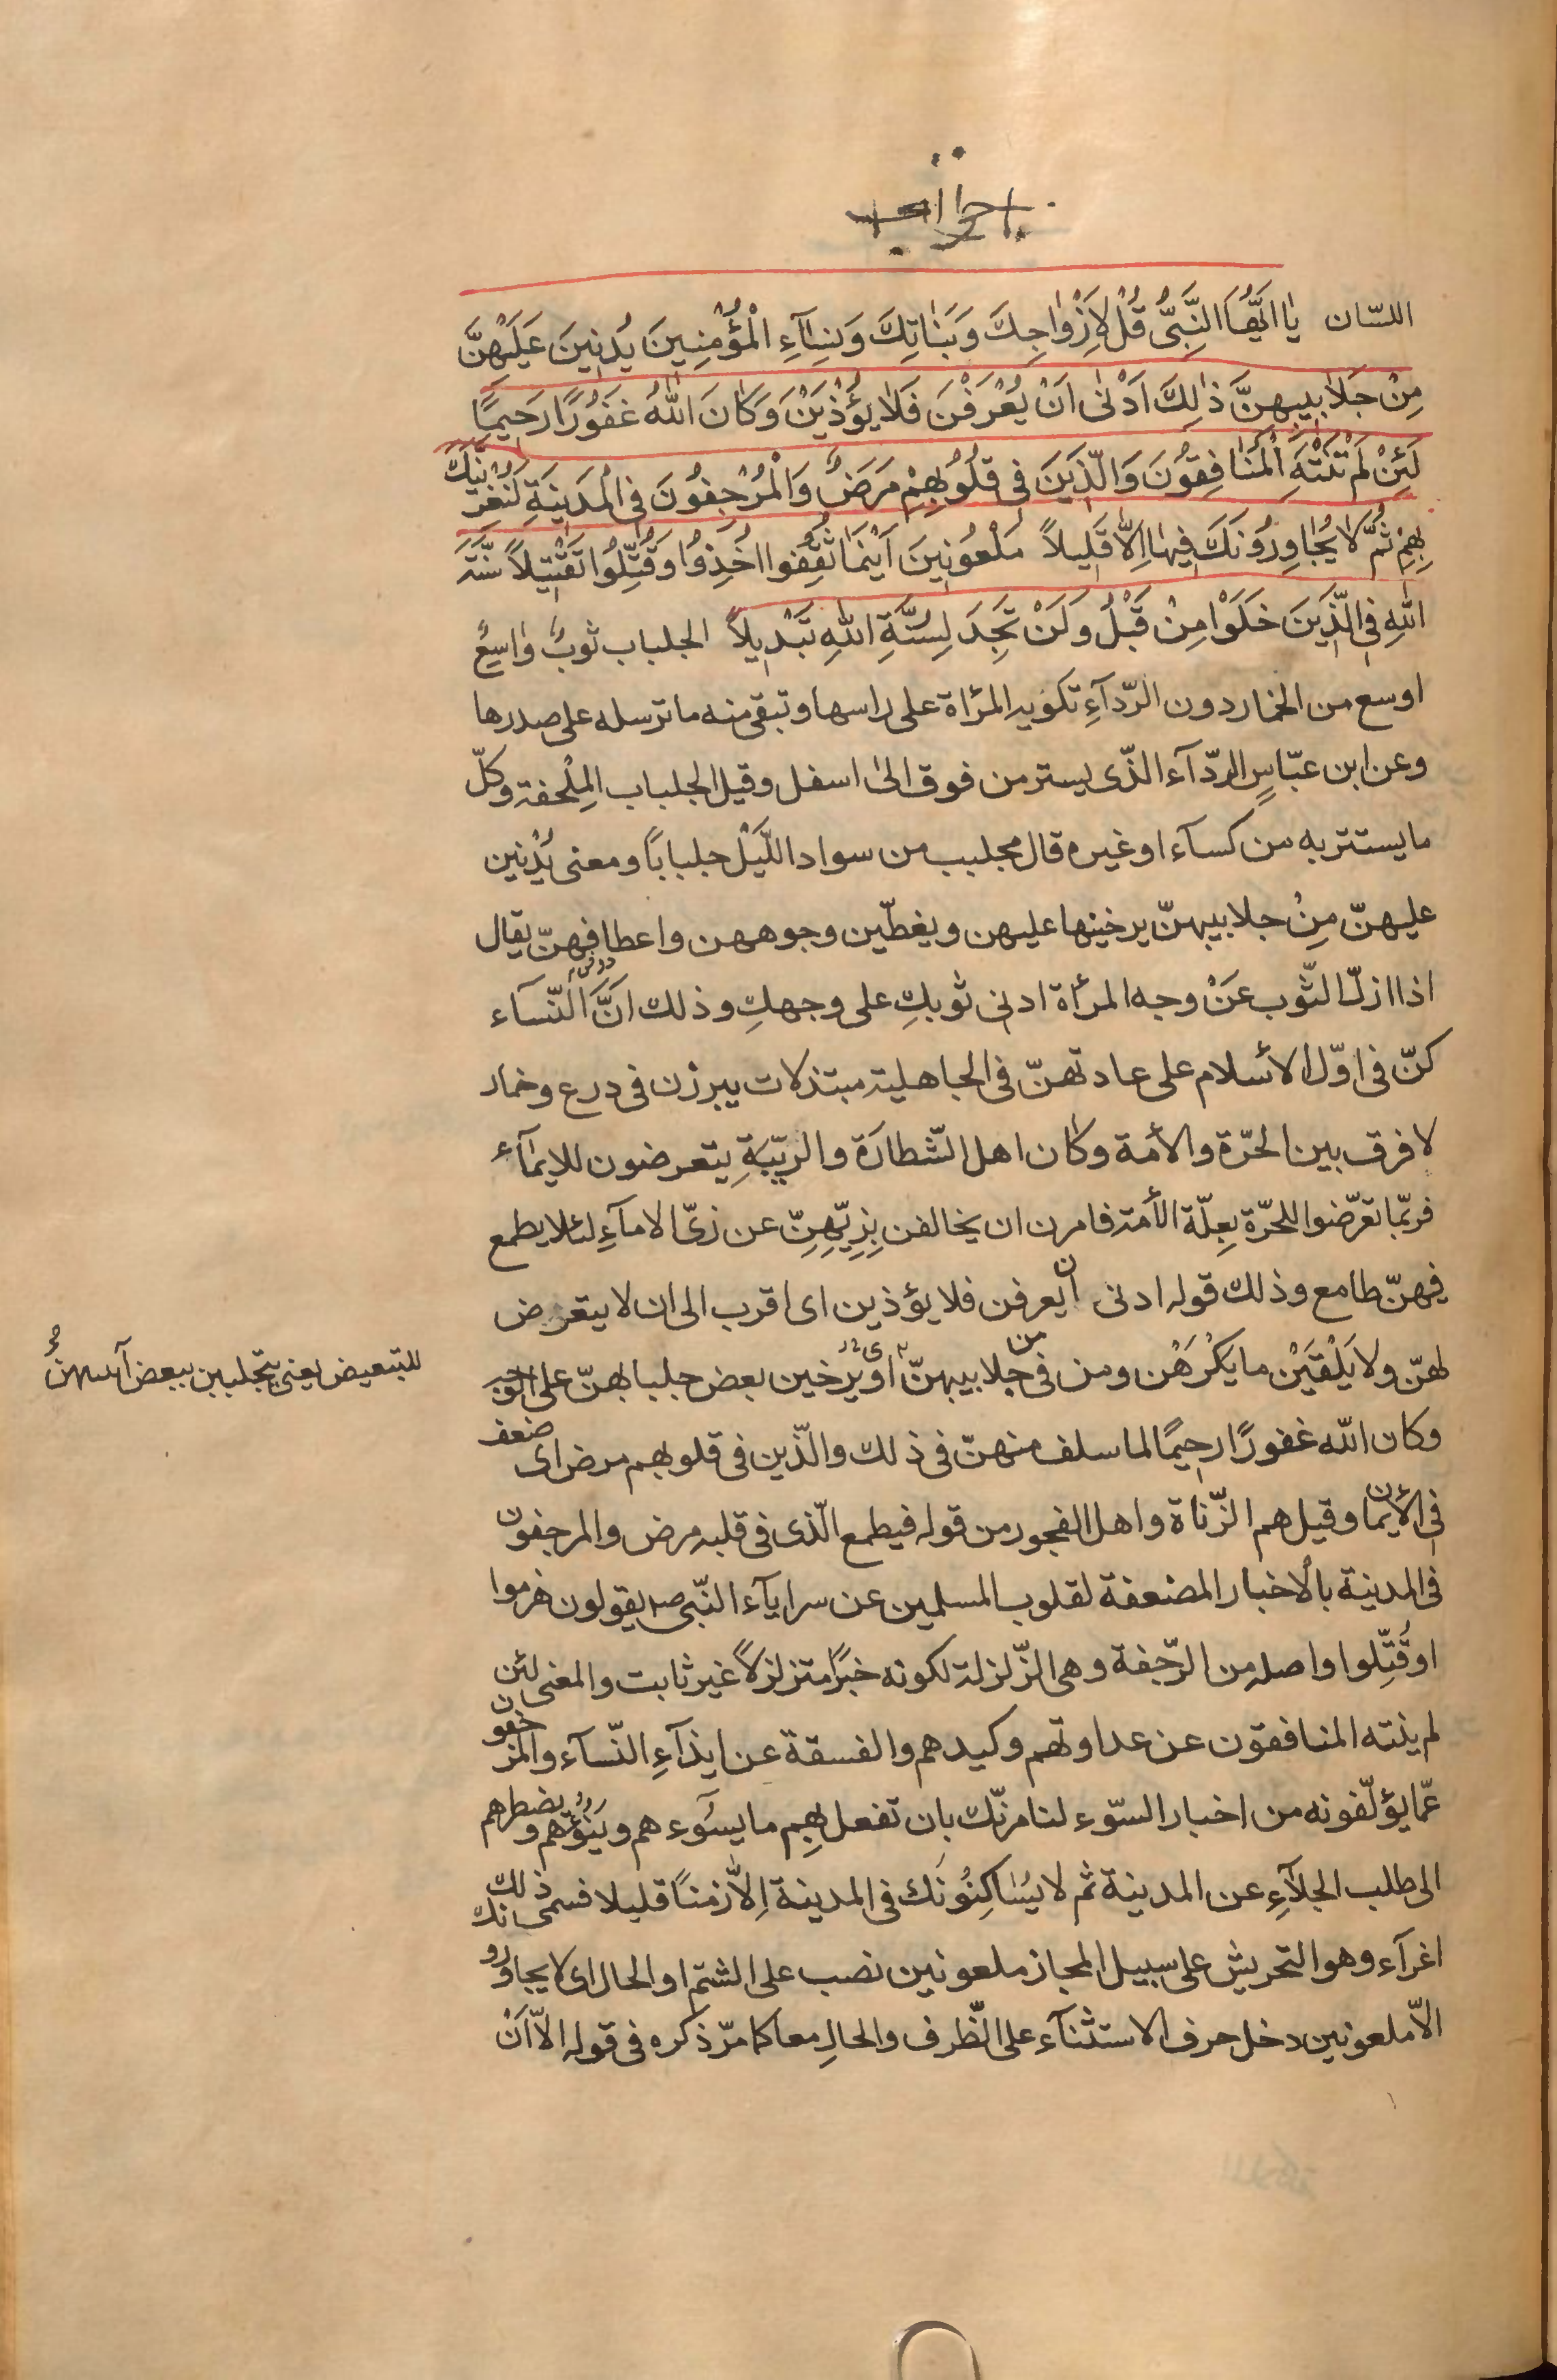 احزاب
اللسّان يٰا اَيُّهَا النَّبِىُّ قُلْ لِاَزْوٰاجِكَ وَبَنٰاتِكَ وَنِسٰآءِ الْمُؤْمِنِينَ يُدْنِينَ عَلَيْهِنَّ
مِنْ جَلٰابِيبِهِنَّ ذٰلِكَ اَدْنٰى اَنْ يُعْرَفْنَ فَلٰا يُؤْذَيْنَ وَكٰانَ اللّٰهُ غَفُورًا رَحِيمًا
لَئِنْ لَمْ تَنْتَهِ الْمُنٰافِقُونَ وَالَّذِينَ فِى قُلُوبِهِمْ مَرَضٌ وَالْمُرْجِفُونَ فِى الْمَدِينَةِ لَنُغْرِيَنَّكَ
بِهِمْ ثُمَّ لٰا يُجٰاوِرُونَكَ فِيهٰا اِلّٰا قَلِيلاً مَلْعُونِينَ اَيْنَمٰا ثُقِفُوا اُخِذُوا وَقُتِّلُوا تَقْتِيلاً سُنَّةَ
اللّٰهِ فِى الَّذِينَ خَلَوْا مِنْ قَبْلُ وَلَنْ تَجِدَ لِسُنَّةِ اللّٰهِ تَبْدِيلاً الجلباب ثوبٌ وٰاسِعٌ
اوسع من الخمار دون الرّدآءِ تكويه المرٔاة على راسها وتبقى منه ما ترسله على صدرها
وعن ابن عبّاسٍ الردّآء الذّى يستر من فوق الىٰ اسفل وقيل الجلباب المِلْحفة وكلّ
ما يستتر به من كسآء او غيره قال مجلبب من سواد اللَّيْل جلباباً ومعنى يُدْنين
عليهنّ مِنْ جلابيبهنّ يرخينها عليهن ويغطّين وجوههن واعطافهنّ يقال
اذا ازلّ الثّوب عَنْ وجه المرأة ادنى ثوبكِ على وجهكِ وذلك انَّ النّساء
كنّ فى اوّل الأسلام على عادتهنّ فى الجاهلية مبتذلات يبرزن فى درع وخمار
لا فرق بين الحرّة والأمة وكان اهل الشّطارَة والرّيبَةِ يتعرضون للايمآء
فربّما تعرّضوا للحرّة بعِلّة الأمة فامرن ان يخالفن بِزِيّهِنّ عن زىّ الامآءِ لئلا يطمع
فيهنّ طامع وذلك قوله ادنى ان يعرفن فلا يؤذين اى اقرب الى ان لا يتعرض
لهنّ ولا يَلْقَيْنْ ما يكْرَهْن ومن فى من جلابيبهنّ اى او يرخين بعض جلبابهنّ على
للتبعيض يعنى يتجلببن ببعض
وكان اللّه غفورًا رحيمًا لما سلف منهنّ فى ذلك والّذين فى قلوبهم مرض اى ضعف
فى الأيمان وقيل هم الزّناة واهل الفجور من قوله فيطمع الّذى فى قلبه مرض والمرجفون
فى المدينة بالاخبار المضعفة لقلوب المسلمين عن سرايآء النّبى ص يقولون هزموا
او قُتِّلوا واصله من الرّجفة وهى الزّلزلة لكونه خبرًا متزلزلاً غير ثابت والمعنى لئن
لم ينته المنافقون عن عداوتهم وكيدهم والفسقة عن ايذآءِ النّسآء والمرجفون
عمّا يؤلّفونه من اخبار السّوء لنامرنّك بان تفعل بهم ما يسَوء هم وينؤّهم ويضطرهم
الى طلب الجلآءِ عن المدينة ثم لا يسُاكِنُونَك فى المدينة اِلّا زمناً قليلا فسمى ذلك
اغرآء وهو التحريش على سبيل المجاز ملعونين نصب على الشتم او الحال اى لا يجاورونك
الاّ ملعونين دخل حرف الاستثنآء على الظّرف والحالِ معا كما مرّ ذكره فى قوله الاّ اَنْ